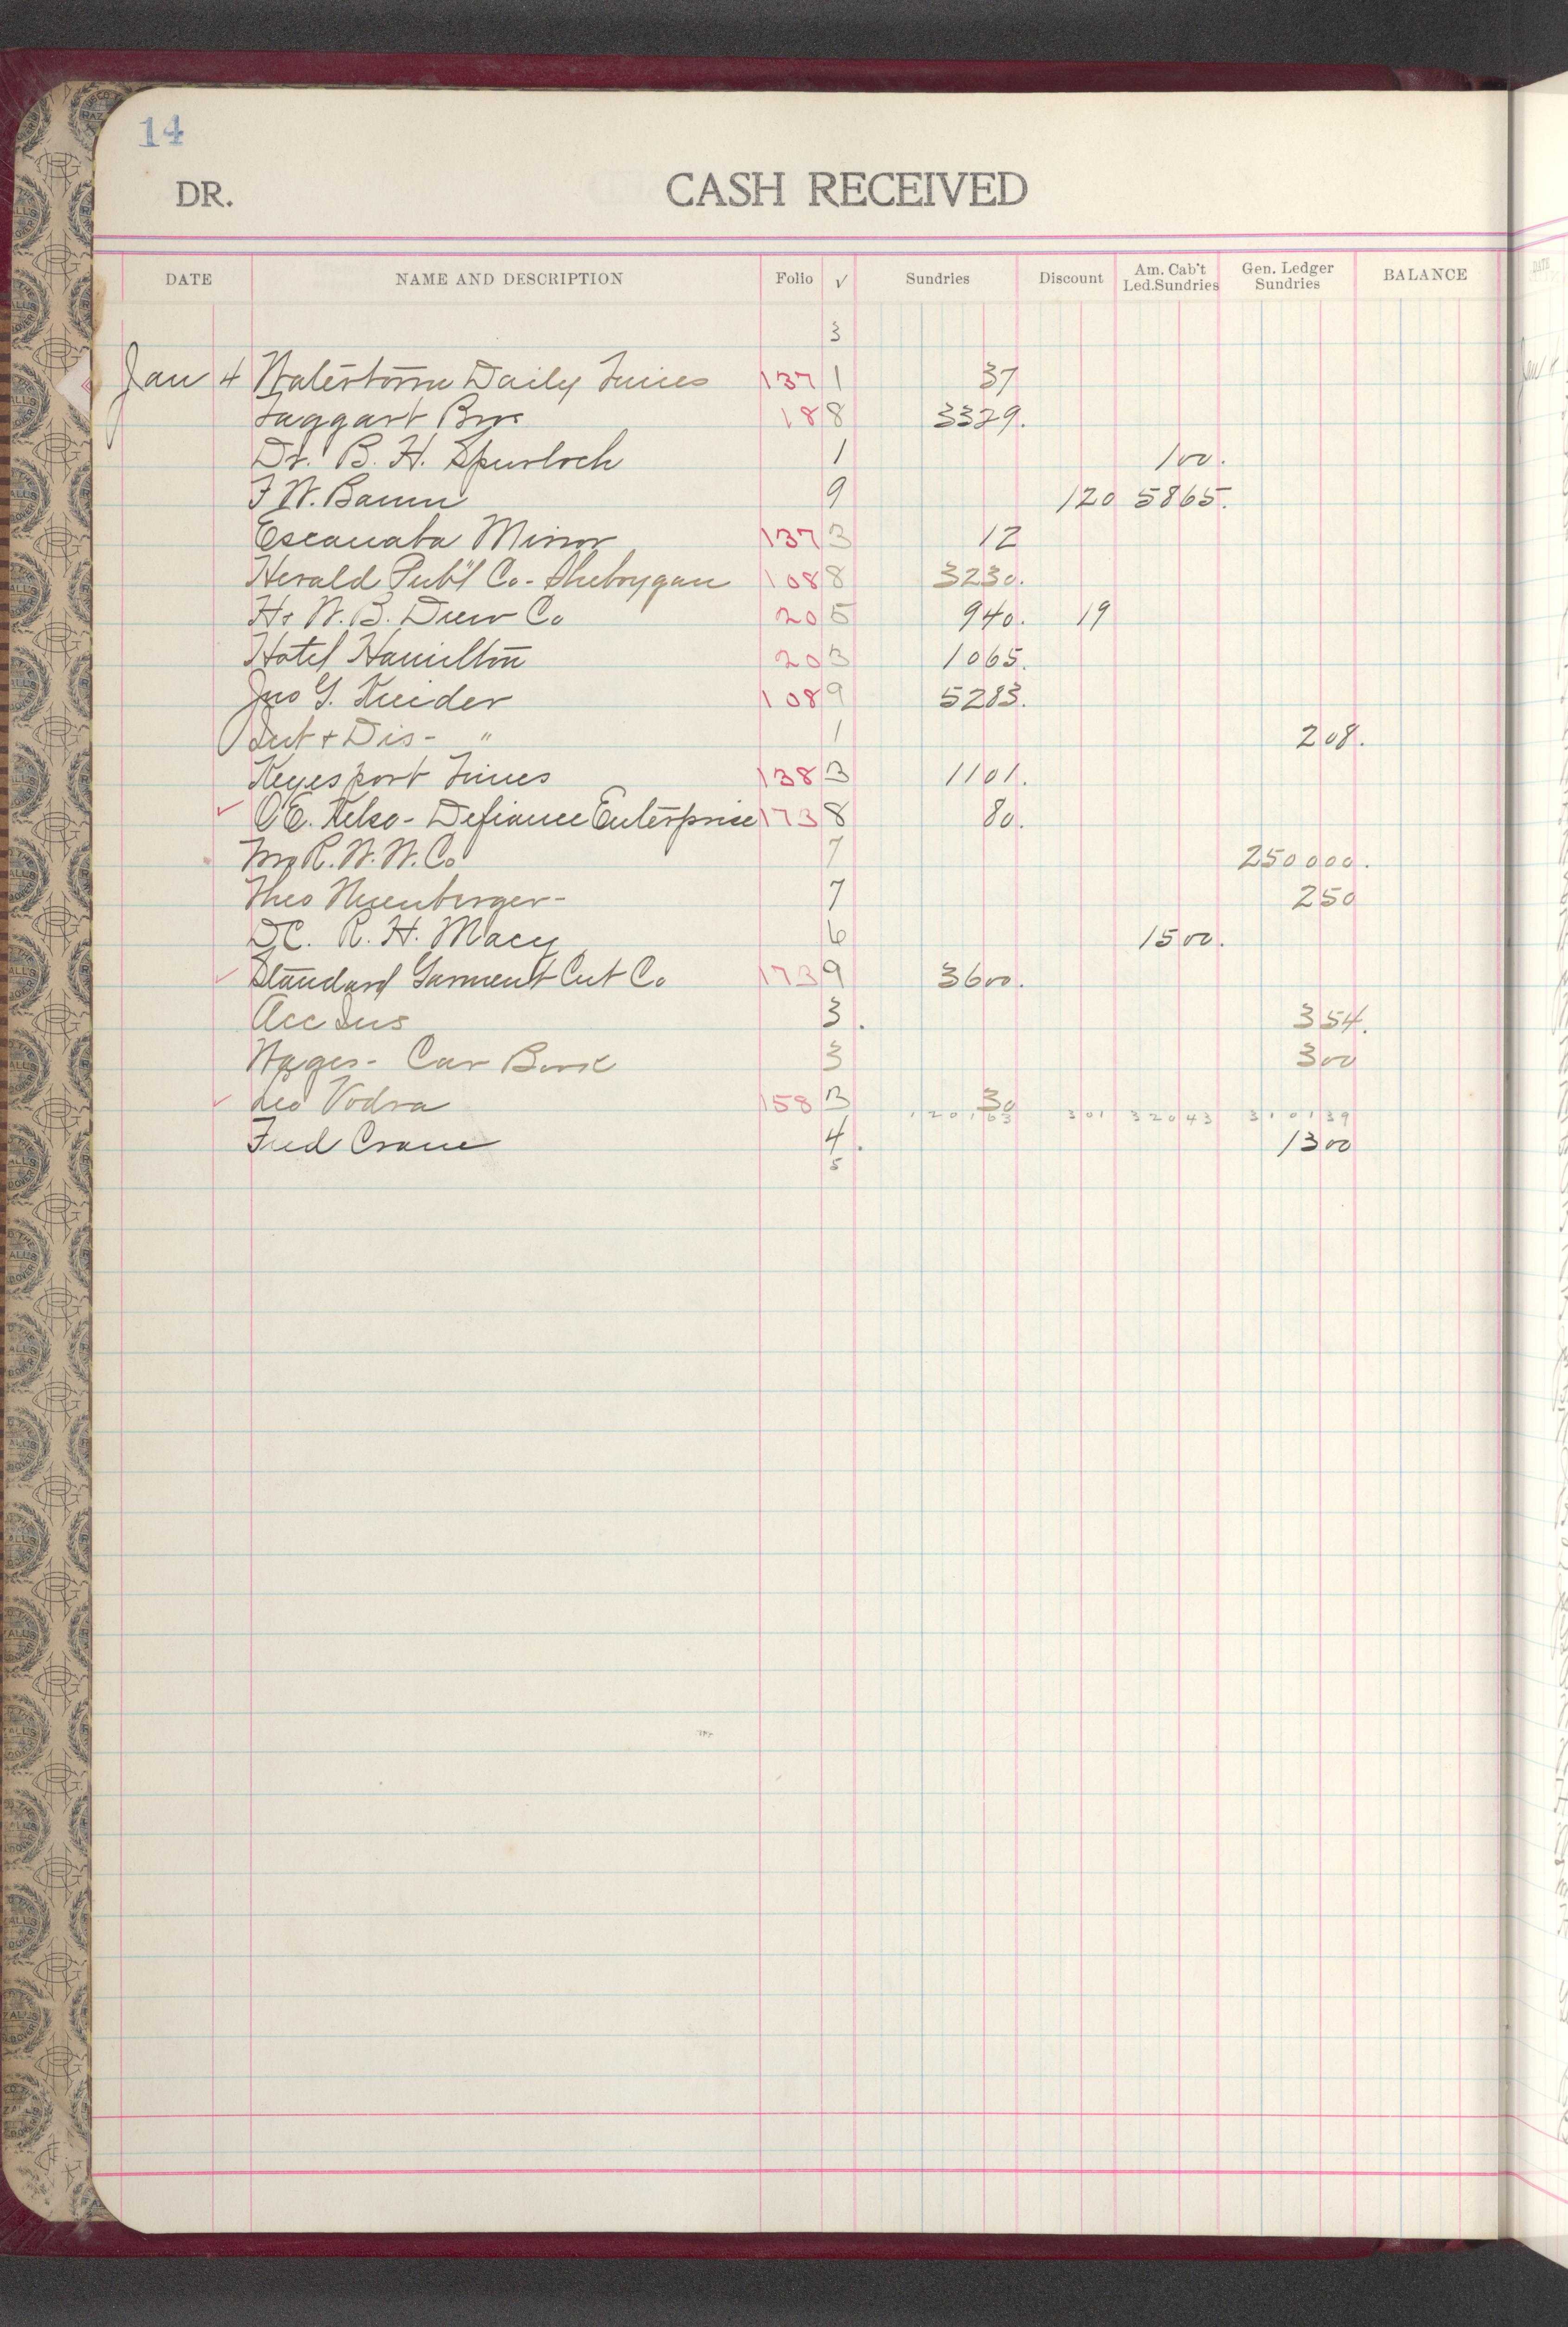 14
DR. CASH RECEIVED
DATE NAME AND DESCRIPTION Folio √ Sundries Discount Am. Cab't Led.Sundries Gen. Ledger Sundries BALANCE
3
Jan 4 Watertown Daily Times 137 1 37
Taggart Bros 18 8 3329.
Dr. B. H. Spurloch 1 100.
F W. Baum 9 120 5865.
Escanaba Mirror 137 3 12
Herald Pub'l Co - Sheboygan 108 8 3230.
H & W. B. Drew Co 20 5 940. 19
Hotel Hamilton 20 3 1065.
Jno G. Kreider 108 9 5283.
Int + Dis - " 1 208.
Keyesport Times 138 3 1101.
✓ C E. Kelso - Defiance Enterprise 173 8 80.
R. W. W. Co 7 250000.
Theo Nuenberger - 7 250
DC. R. H. Macy 6 1500.
✓ Standard Garment Cut Co 173 9 3600.
Acc Ins 3. 354.
Wages - Car 3 300
✓ Leo Vodra 158 3 30
120163 301 32043 310139
Fred Crane 4. 1300
5